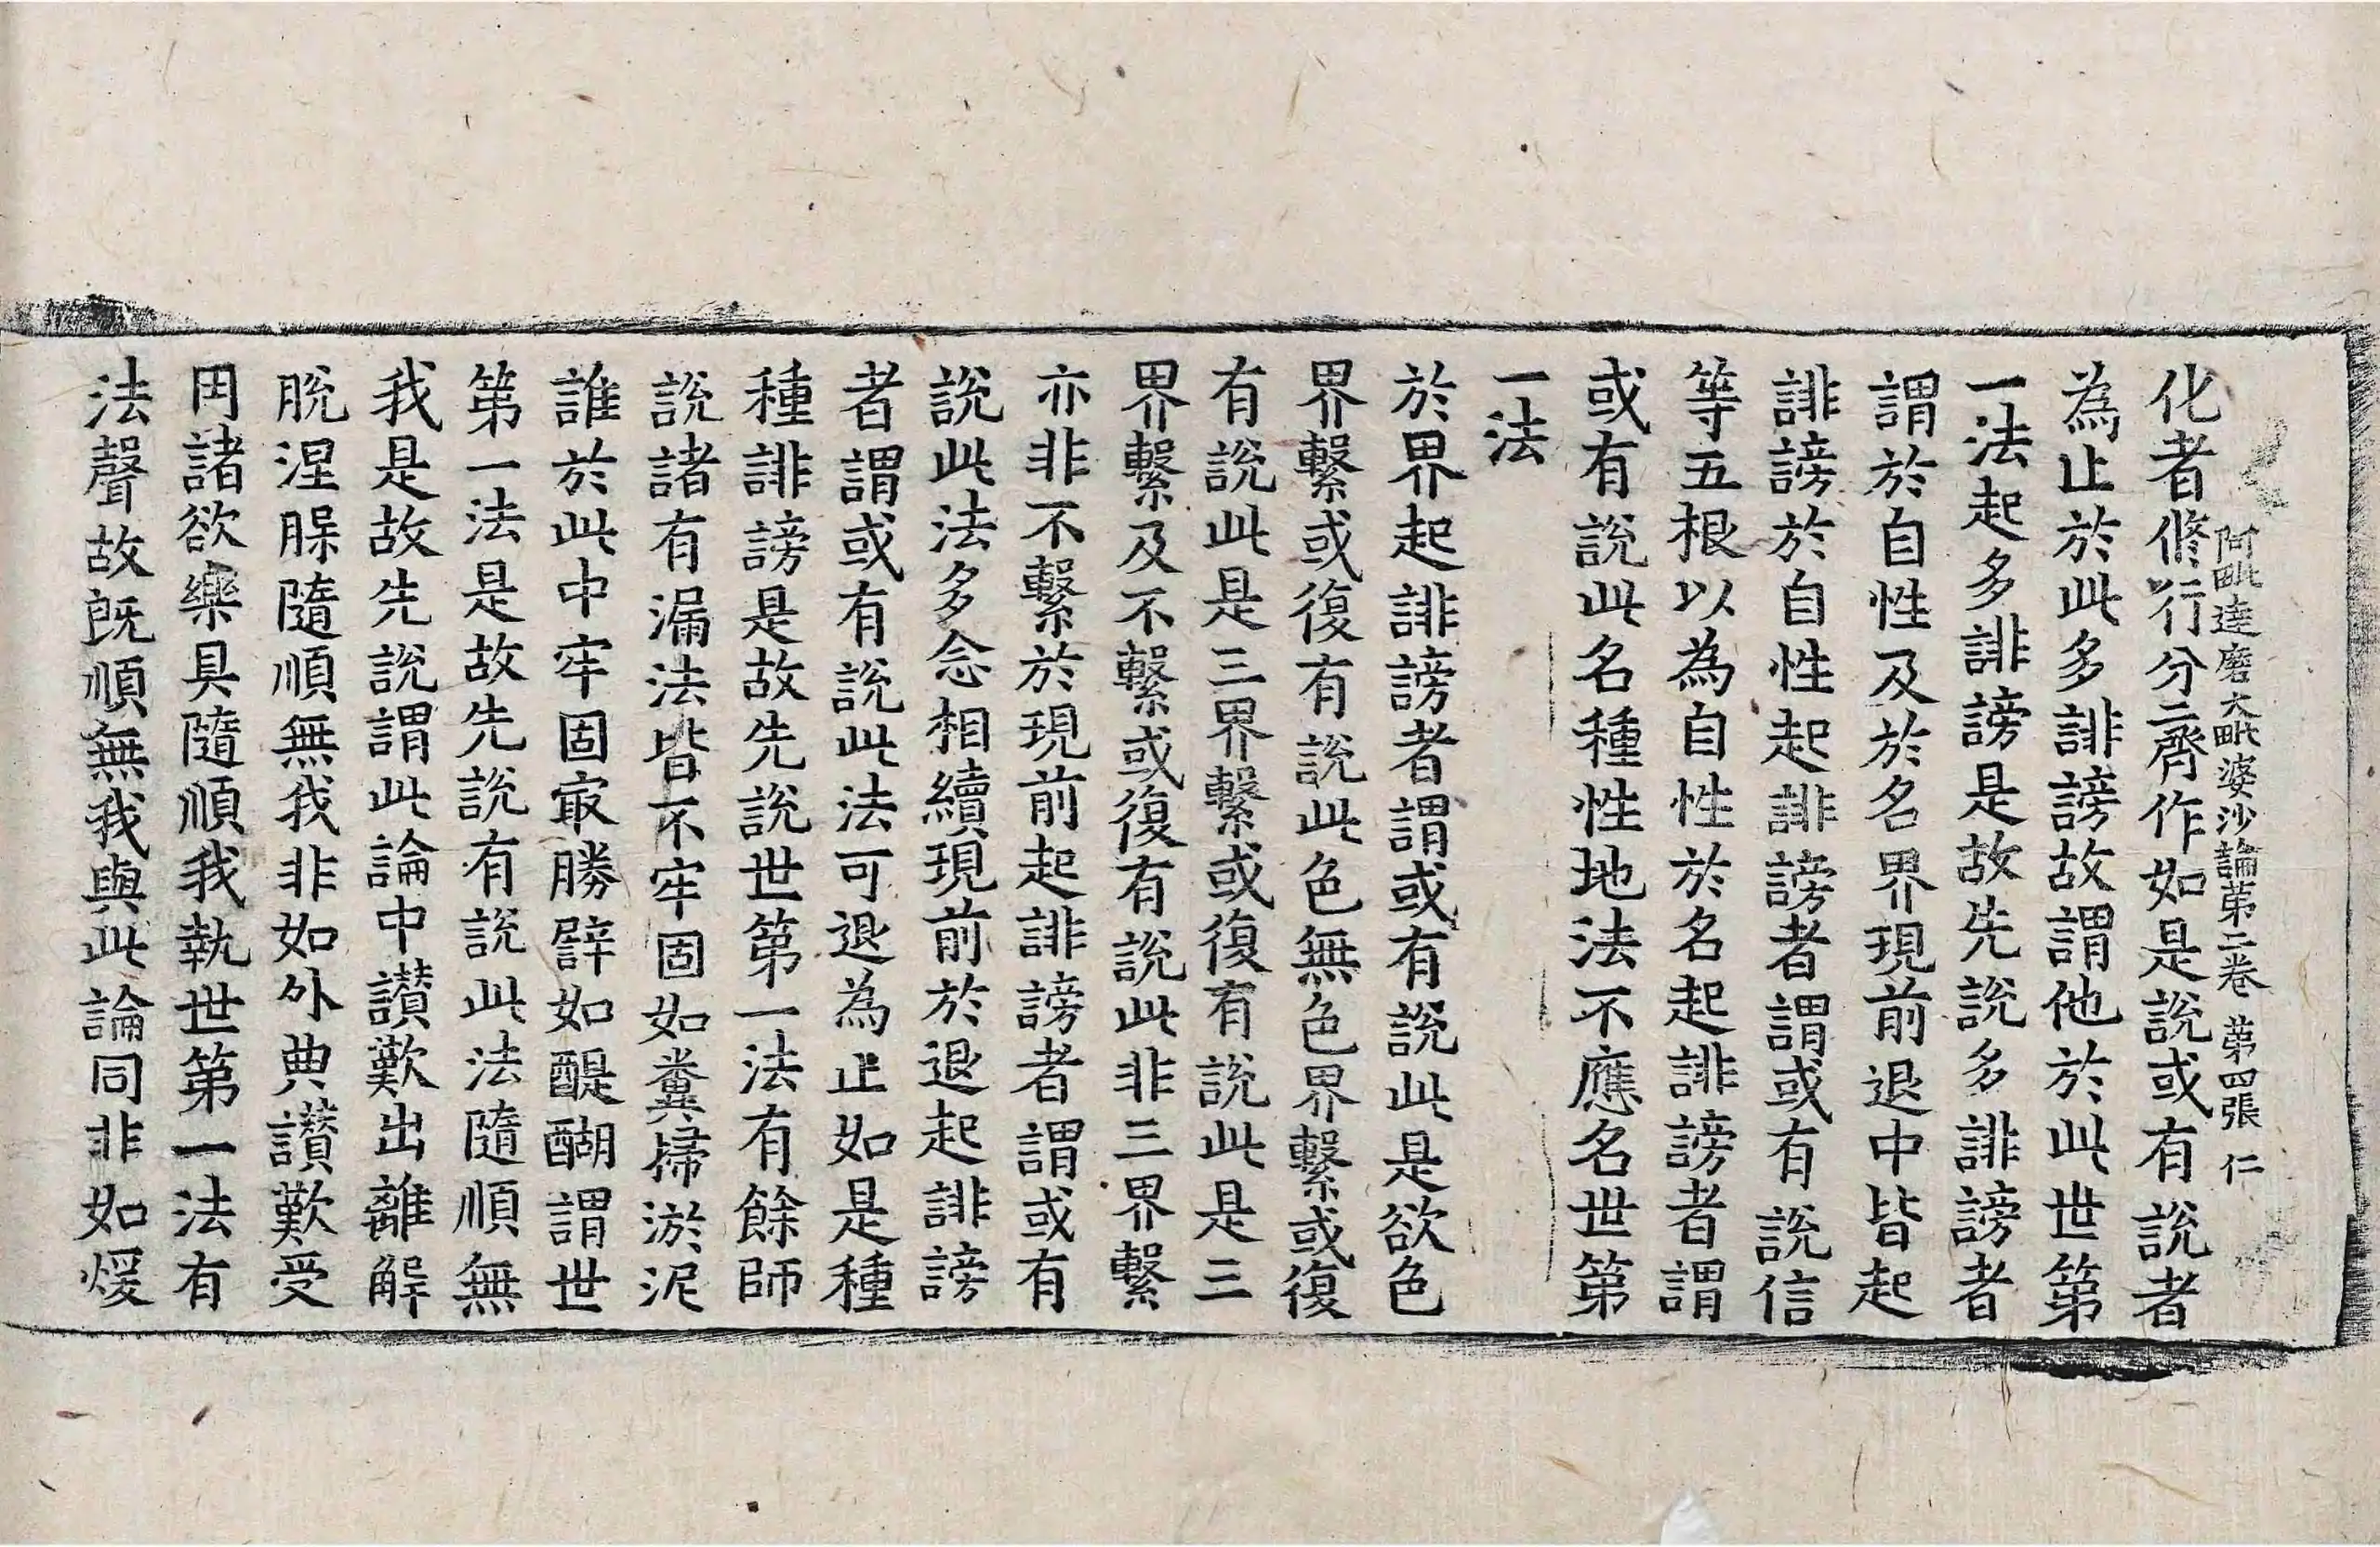 阿毗達磨大毗婆沙論第二卷 第四張 仁
化者修行分齊作如是說或有說者
為止於此多誹謗故謂他於此世第
一法起多誹謗是故先說多誹謗者
謂於自性及於名界現前退中皆起
誹謗於自性起誹謗者謂或有說信
等五根以為自性於名起誹謗者謂
或有說此名種性地法不應名世第
一法
於界起誹謗者謂或有說此是欲色
界繫或復有說此色無色界繫或復
有說此是三界繫或復有說此是三
界繫及不繫或復有說此非三界繫
亦非不繫於現前起誹謗者謂或有
說此法多念相續現前於退起誹謗
者謂或有說此法可退為止如是種
種誹謗是故先說世第一法有餘師
說諸有漏法皆不牢固如糞掃淤泥
誰於此中牢固㝡勝譬如醍醐謂世
第一法是故先說有說此法隨順無
我是故先說謂此論中讃歎出離解
脫涅槃隨順無我非如外典讃歎受
用諸欲樂具隨順我執世第一法有
法聲故旣順無我與此論同非如煖